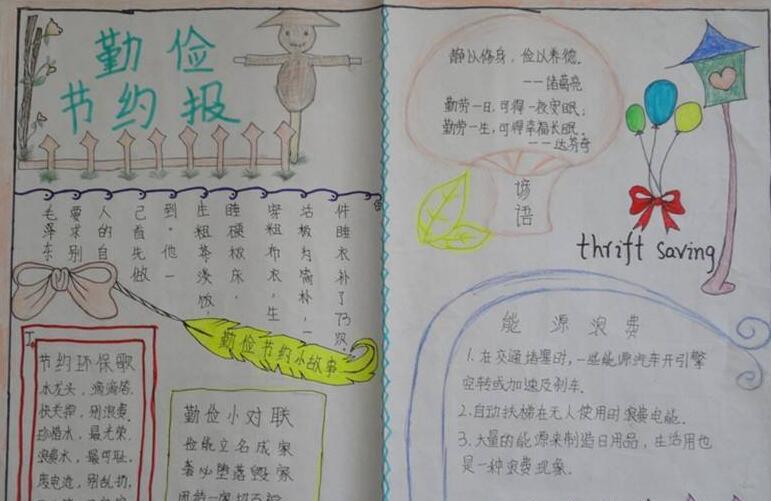 勤俭
节约报
毛泽东
要求别
人的自
己首先做
到。他一
生粗茶淡饭,
睡硬板床,
穿粗布衣,生
活极为简朴,一
件睡衣补了73次.
勤俭节约小故事
节约环保歌
水龙头,滴滴答.
快关掉,别浪费.
珍惜水,最光荣.
浪费水,最可耻.
废电池,别乱扔.
勤俭小对联
俭能立名成家
奢必堕落毁家
静以修身,俭以养德.
——诸葛亮
勤劳一日,可得一夜安眠;
勤劳一生,可得幸福长眠.
——达芬奇
谚语
thrift saving
能源浪费
1.在交通堵塞时,一些能源汽车开引擎
空转或加速及刹车.
2.自动扶梯在无人使用时浪费电能.
3.大量的能源来制造日用品,生活用也
是一种浪费现象.